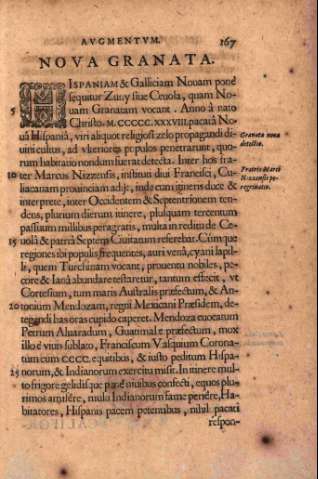 AVGMENTVM.
167
NOVA GRANATA.
HISPANIAM & Galliciam Nouam ponè
sequitur Zuny siue Ceuola, quam No-
5 uam Granatam vocant. Anno à nato
Christo. M. CCCCC. XXXVIII. pacatâ No-
uâ Hispaniâ, viri aliquot religiosi zelo propagandi di-
uini cultus, ad vlteriores populos penetrarunt, quo-
rum habitatio nondum fuerat detecta. Inter hos fra-
10 ter Marcus Nizzensis, instituti diui Francisci, Cu-
liacanam prouinciam adijt, inde cum itineris duce &
interprete, inter Occidentem & Septentrionem ten-
dens, plurium dierum itinere, plusquam tercentum
passuum millibus peragratis, multa in reditu de Ce-
15 uolâ & patriâ Septem Ciuitatum referebat. Cùm que
regiones ibi populis frequentes, auri venâ, cyani lapil-
li, quem Turchinam vocant, prouentu nobiles, pe-
core & lanâ abundare testaretur, tantum effecit, vt
Cortesium, tum maris Australis præfectum, & An-
20 tonium Mendozam, regni Mexicani Præsidem, de-
tegendi has oras cupido caperet. Mendoza euocatum
Petrum Aluaradum, Guatimalæ præfectum, mox
illo è viuis sublato, Franciscum Vasquium Corona-
tum cum CCCC. equitibus, & iusto peditum Hispa-
25 norum, & Indianorum exercitu misit. In itinere mul-
to frigore gelidisque confecti, equos plu-
rimos amisêre, multi Indianorum fame periêre. Ha-
bitatores, Hispanis pacem petentibus, nihil pacati
respon-
Granata noua
detectio.
Fratris Marci
Nizzensis pe-
regrinatio.